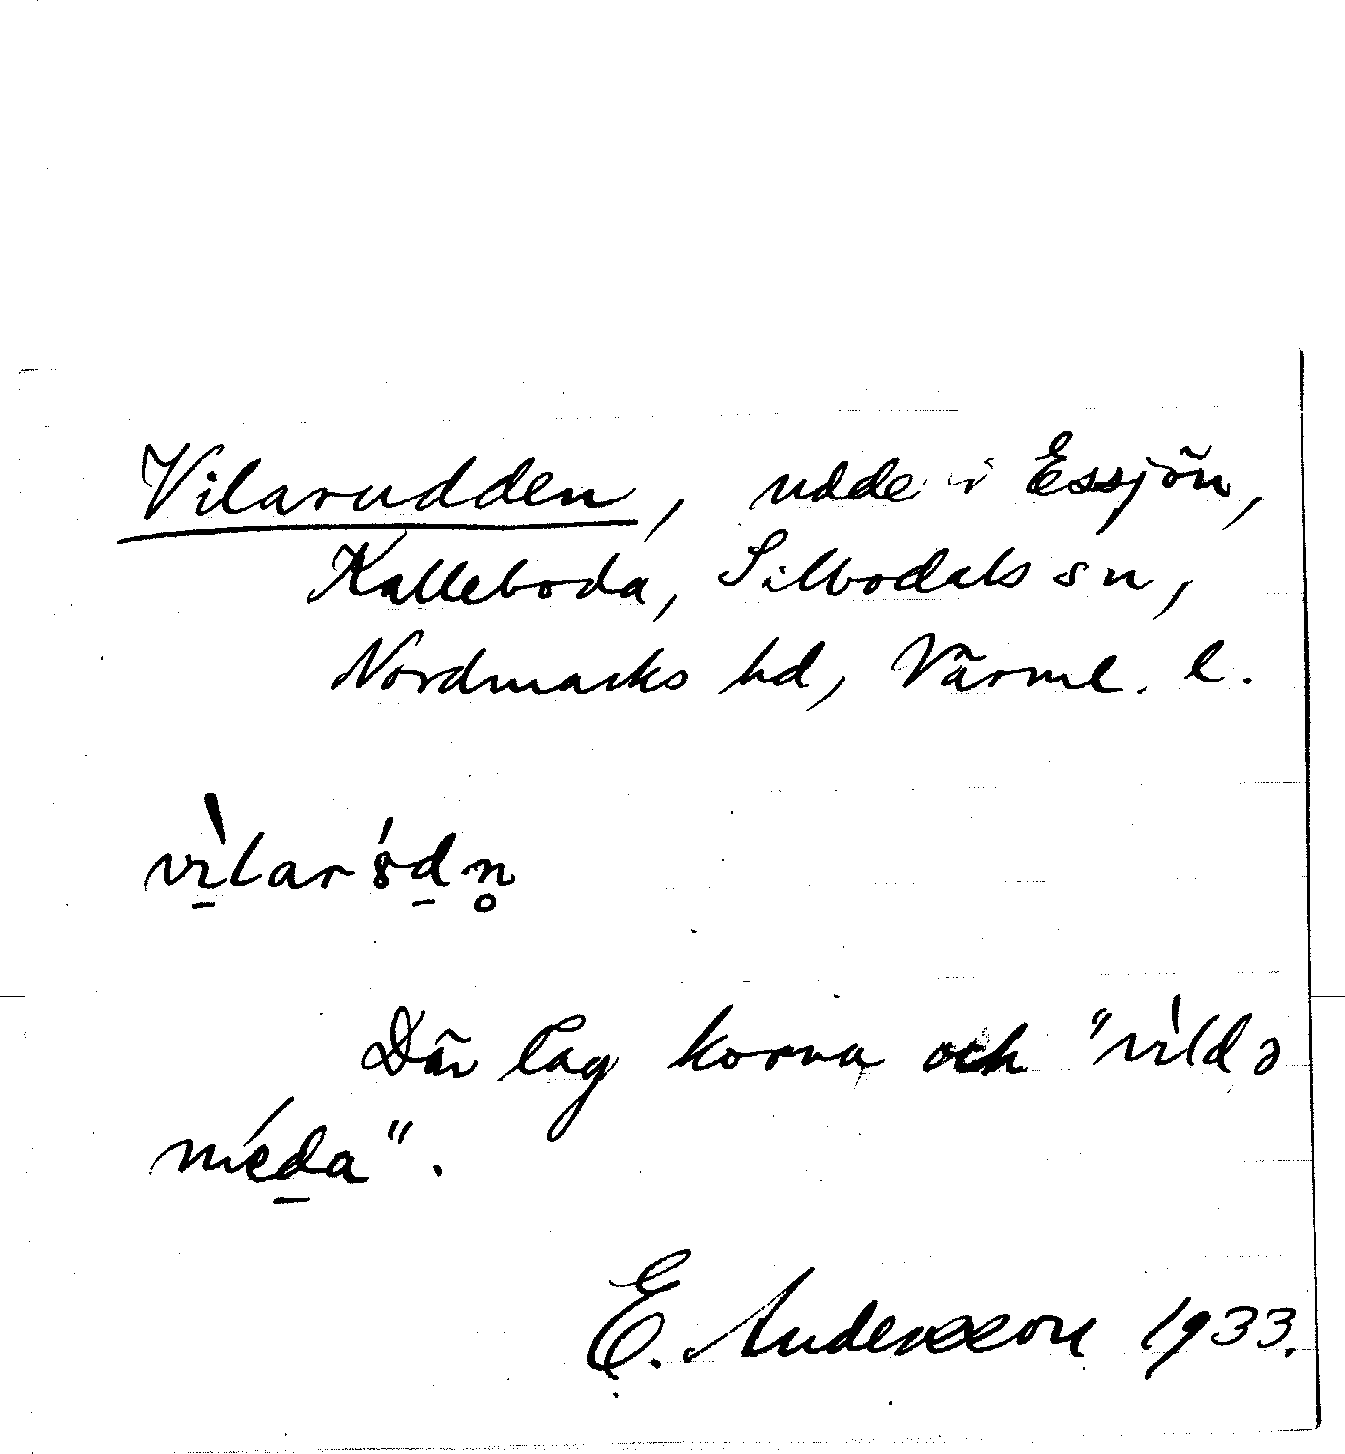 Vilarudden, udde i Essjön,
Kalleboda, Silbodals sn,
Nordmarks hd, Värml. l.
Där låg korna och "vildə
meda".
E. Andersson 1933.